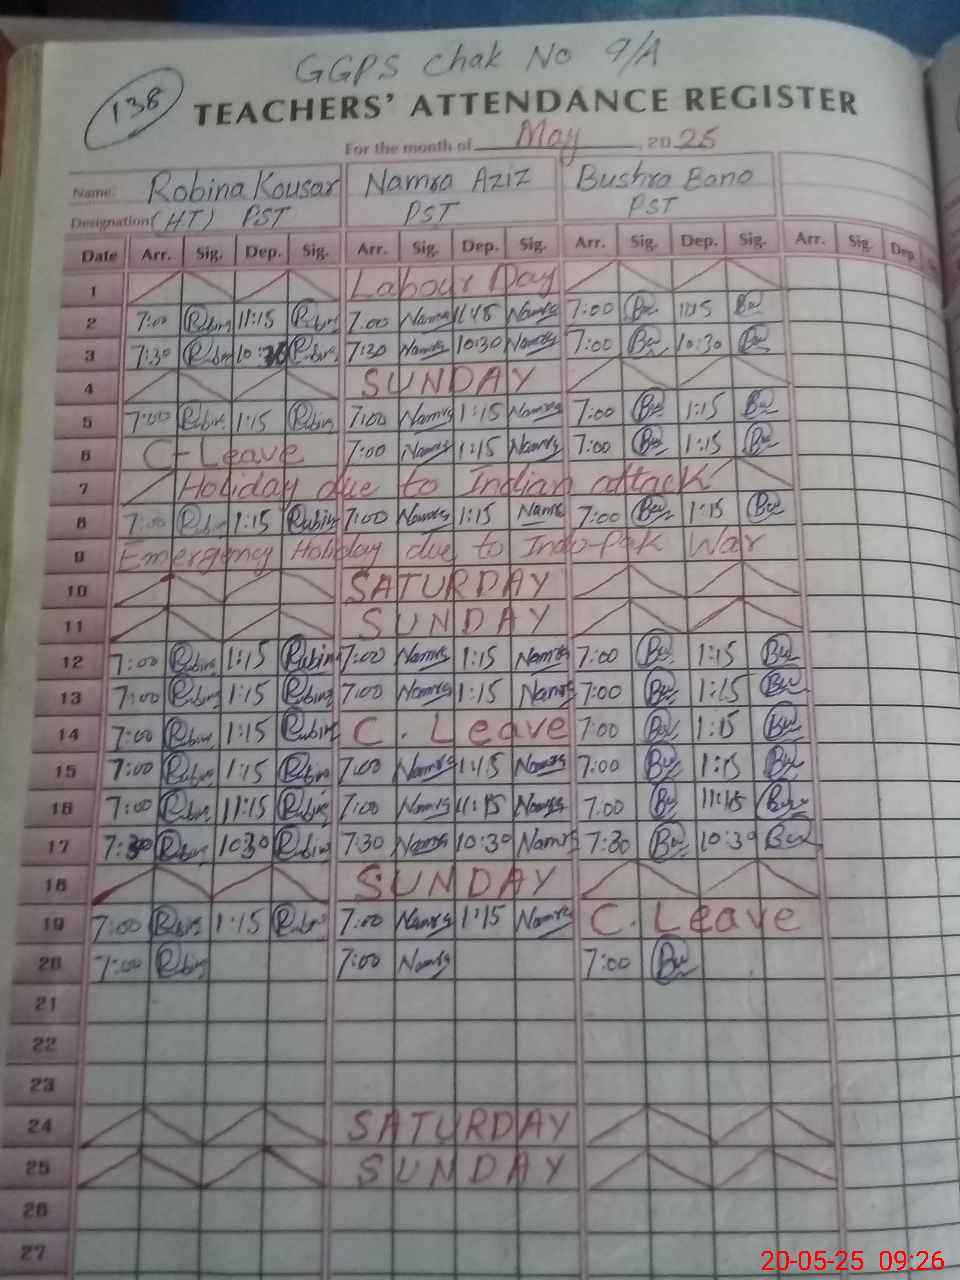 GGPS Chak No 9/A
138
TEACHERS' ATTENDANCE REGISTER
For the month of May, 2025
Name: Robina Kousar Namra Aziz Bushra Bano
Designation (H.T) PST PST PST
Date Arr. Sig. Dep. Sig. Arr. Sig. Dep. Sig. Arr. Sig. Dep. Sig. Arr. Sig. Dep.
1 Labour Day
2 7:00 Rubina 11:15 Rubina 7:00 Namra 11:15 Namra 7:00 11:15
3 7:30 Rubina 10:30 Rubina 7:30 Namra 10:30 Namra 7:00 10:30
4 SUNDAY
5 7:00 Rubina 1:15 Rubina 7:00 Namra 1:15 Namra 7:00 1:15
6 C-Leave 7:00 Namra 1:15 Namra 7:00 1:15
7 Holiday due to Indian attack
8 7:00 Rubina 1:15 Rubina 7:00 Namra 1:15 Namra 7:00 1:15
9 Emergency Holiday due to Indo-Pak War
10 SATURDAY
11 SUNDAY
12 7:00 Rubina 1:15 Rubina 7:00 Namra 1:15 Namra 7:00 1:15
13 7:00 Rubina 1:15 Rubina 7:00 Namra 1:15 Namra 7:00 1:15
14 7:00 Rubina 1:15 Rubina C. Leave 7:00 1:15
15 7:00 Rubina 1:15 Rubina 7:00 Namra 1:15 Namra 7:00 1:15
16 7:00 Rubina 11:15 Rubina 7:00 Namra 11:15 Namra 7:00 11:15
17 7:30 Rubina 10:30 Rubina 7:30 Namra 10:30 Namra 7:30 10:30
18 SUNDAY
19 7:00 Rubina 1:15 Rubina 7:00 Namra 1:15 Namra C. Leave
20 7:00 Rubina 7:00 Namra 7:00
21
22
23
24 SATURDAY
25 SUNDAY
26
27
20-05-25 09:26